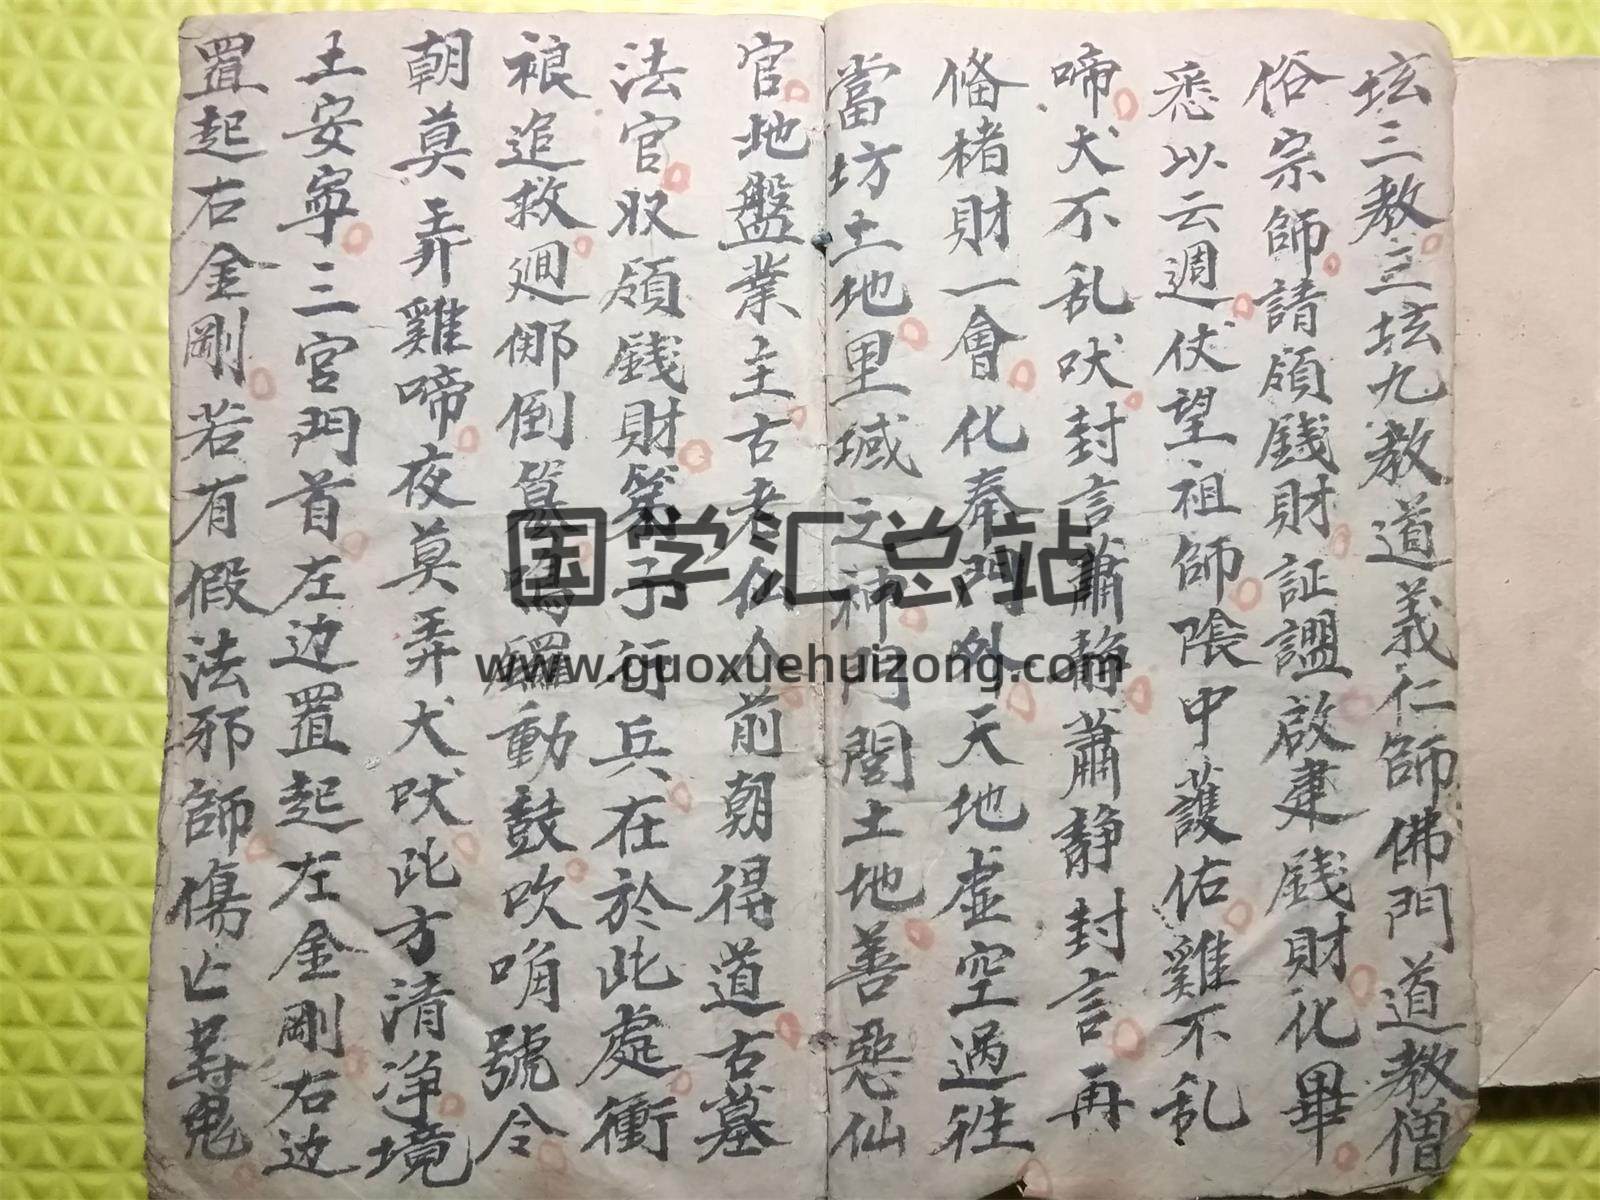 坛三教立坛九教道義仁師佛門道教僧
俗宗師請領錢財証讯啟建錢財化畢
悉以云週伏望祖師隂中護佑雞不乱
啼犬不乱吠封言肅静肅静封言再
俻楮財一會化奉門外天地虚空過往
當坊土地里域之神門閭土地善惡仙
官地盤業主古老仙人前朝得道古墓
法官収領錢財第子行兵在於此處衝
裉追救廻挪倒篡鳴鑼動鼓吹角號令
朝莫弄雞啼夜莫弄犬吠此方清净境
土安寧三宫門首左边置起左金剛右边
置起右金剛若有假法邪師傷亡荨鬼
国学汇总站
www.guoxuehuizong.com